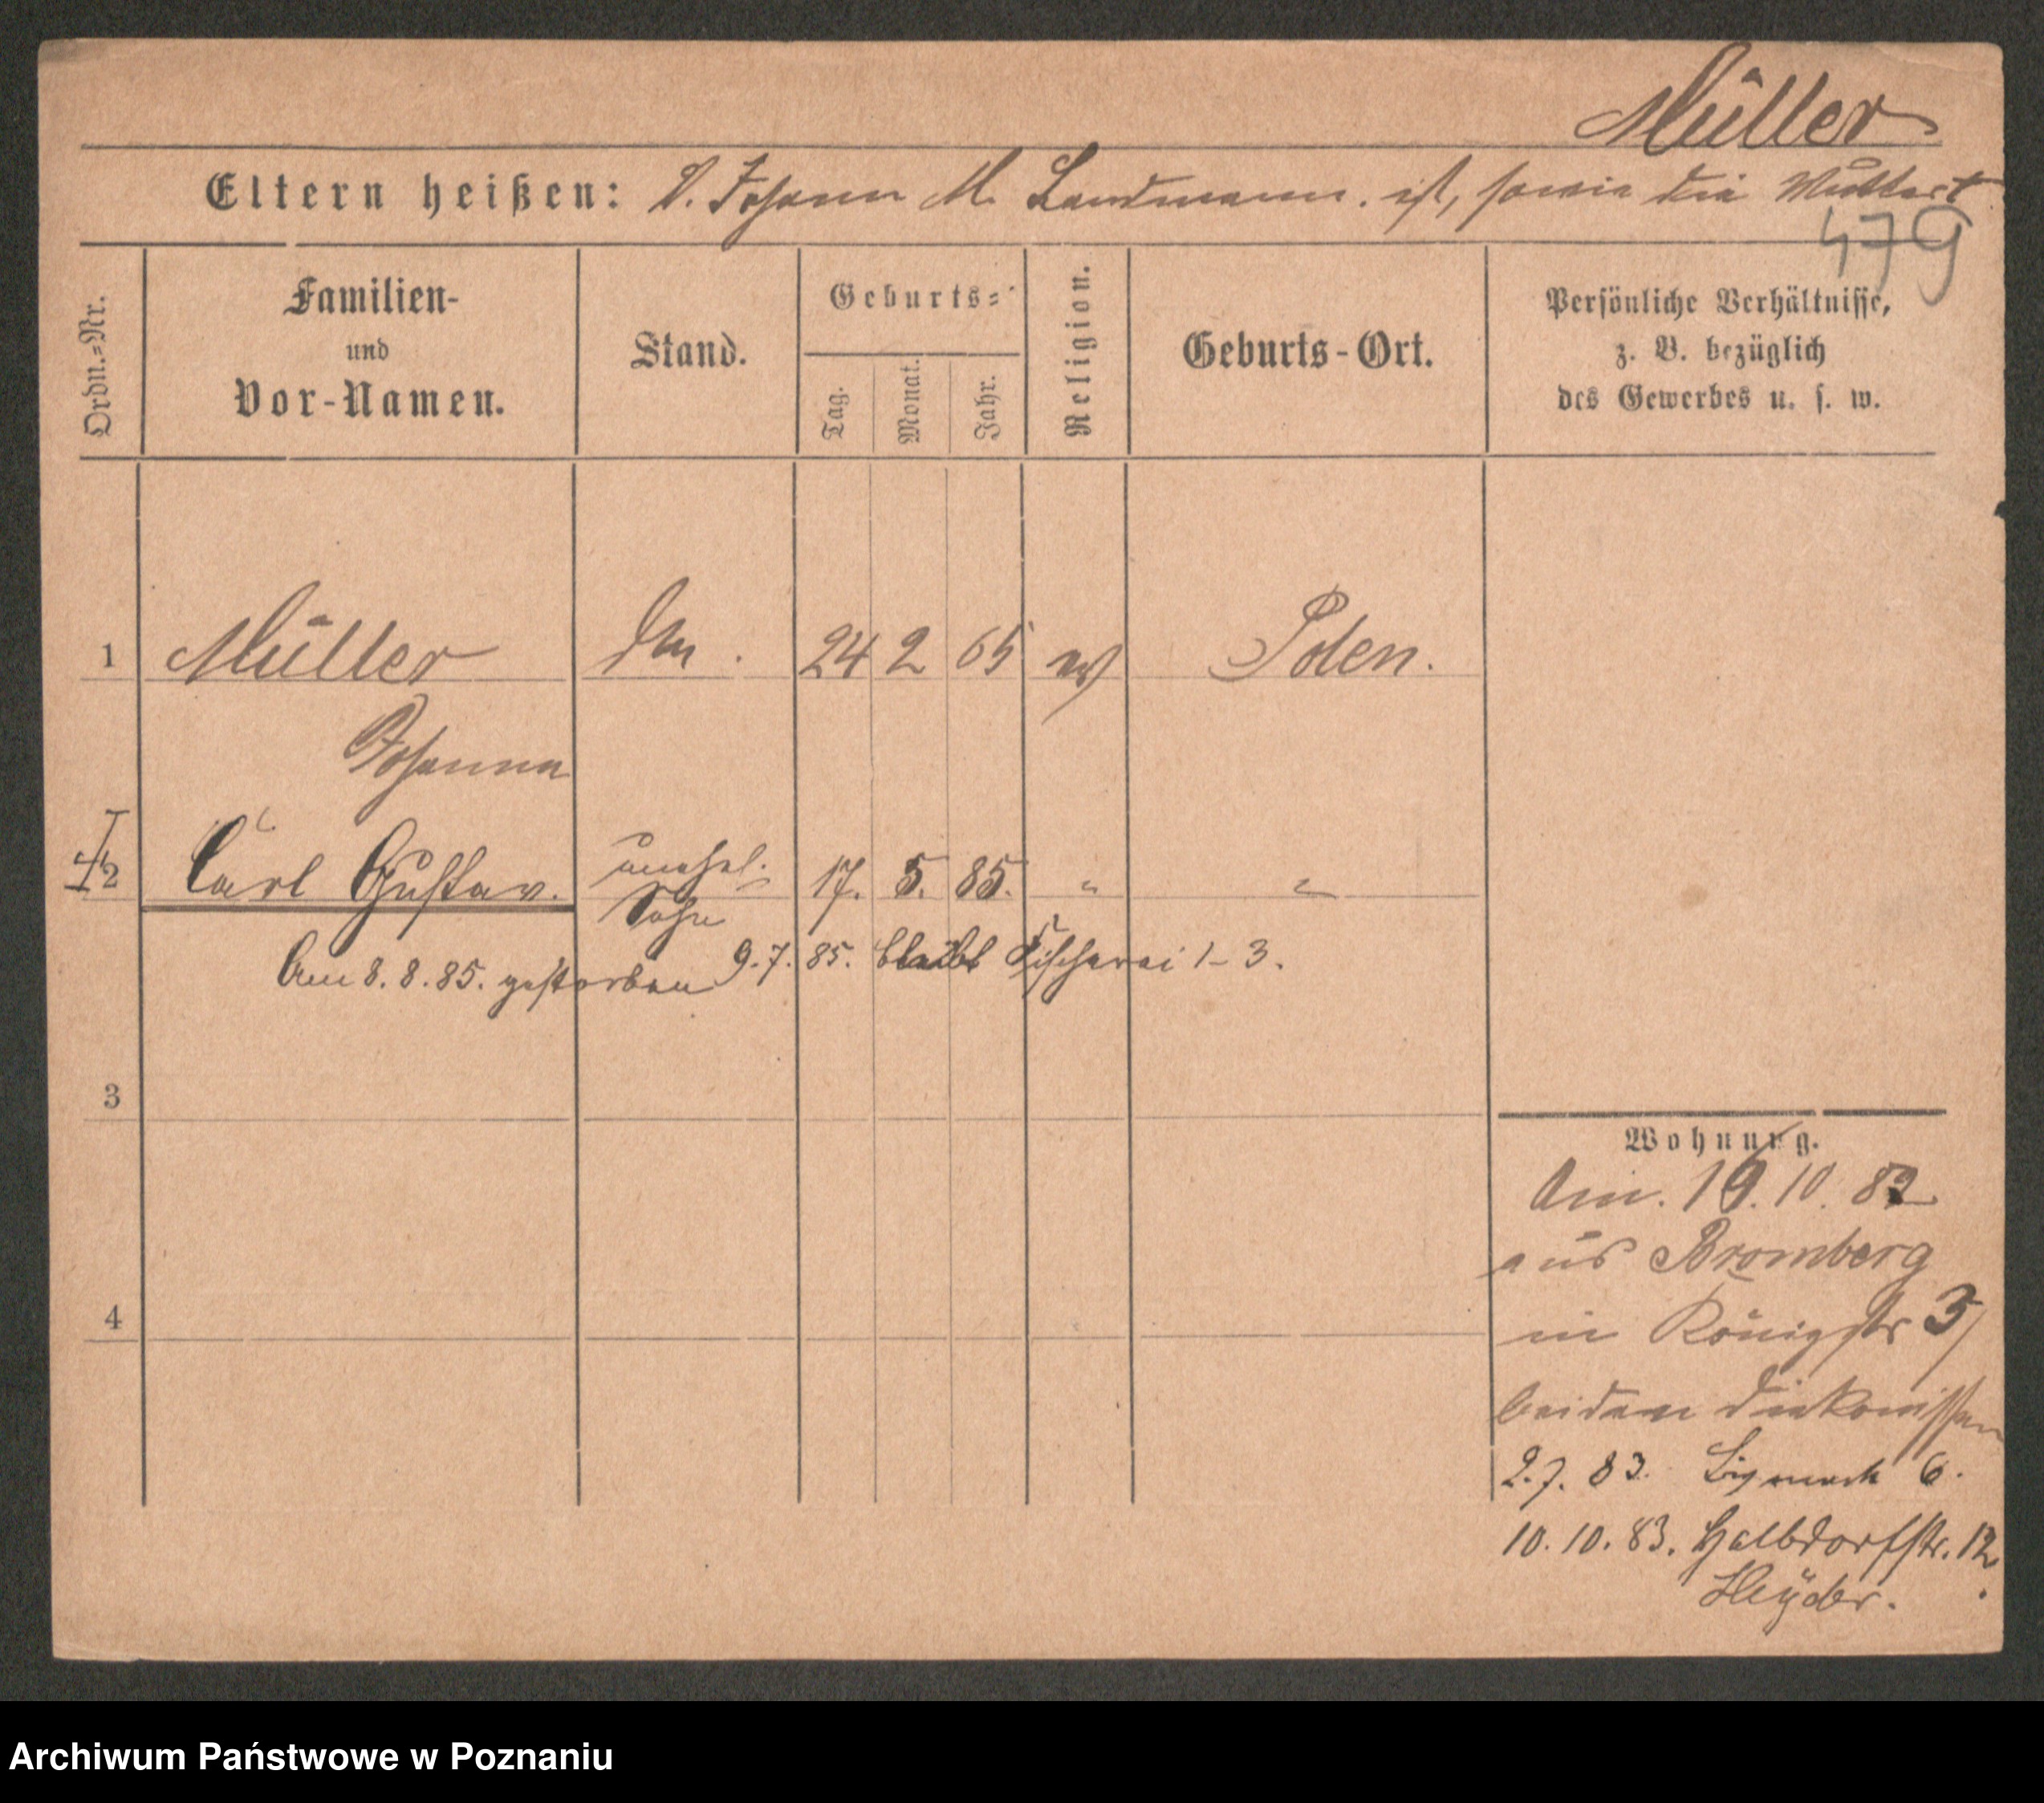 Müller
Eltern heißen: V. Johann M. Landmann. ist, sowie die Mutter t
479
Ordn.=Nr.
Familien-
und
Vor-Namen.
Stand.
Geburts=
Tag.
Monat.
Jahr.
Religion.
Geburts-Ort.
Persönliche Verhältnisse,
z. B. bezüglich
des Gewerbes u. s. w.
1 Müller 24 2 65 Polen.
Johanna
2 Carl Gustav. unehel. 17. 5. 85. " "
Sohn
9.7.85. bleibt Fischerei 1-3.
Am 8.8.85. gestorben
3
4
Wohnung.
10. 82
aus Bromberg
in Königstr 5/
bei den Diakonissen
2.7.83. Bismark 6.
10.10.83. Halbdorfstr. 12.
Heyder.
Archiwum Państwowe w Poznaniu